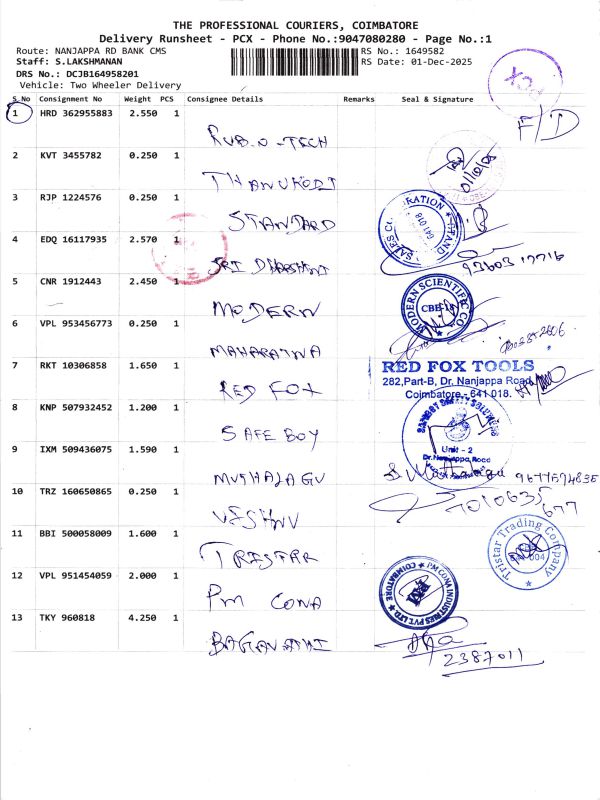 THE PROFESSIONAL COURIERS, COIMBATORE
Delivery Runsheet - PCX - Phone No.:9047080280 - Page No.:1
Route: NANJAPPA RD BANK CMS
RS No.: 1649582
Staff: S.LAKSHMANAN
RS Date: 01-Dec-2025
DRS No.: DCJB164958201
Vehicle: Two Wheeler Delivery
PCX
S.No Consignment No Weight PCS Consignee Details Remarks Seal & Signature
1 HRD 362955883 2.550 1 RUB.O-TECH F/D
2 KVT 3455782 0.250 1 THANUKODI
3 RJP 1224576 0.250 1 STANDARD
SALES CORPORATION
641 018
4 EDQ 16117935 2.570 1 SRI DHARSHNI
5 CNR 1912443 2.450 1 MODERN
MODERN SCIENTIFIC CO.
CBE-18
6 VPL 953456773 0.250 1 MAHARATNA
7 RKT 10306858 1.650 1 RED FOX
RED FOX TOOLS
282,Part-B, Dr. Nanjappa Road,
Coimbatore - 641 018.
8 KNP 507932452 1.200 1 SAFE BOY
Unit - 2
Dr.Nanjappa Road
9 IXM 509436075 1.590 1 MUTHALAGU
10 TRZ 160650865 0.250 1 VISHNU
11 BBI 500058009 1.600 1 TRISTAR
Tristar Trading Company
12 VPL 951454059 2.000 1 PM CONA
PM CONA INDUSTRIES PVT LTD
COIMBATORE
13 TKY 960818 4.250 1 BAGAVATHI
2387011